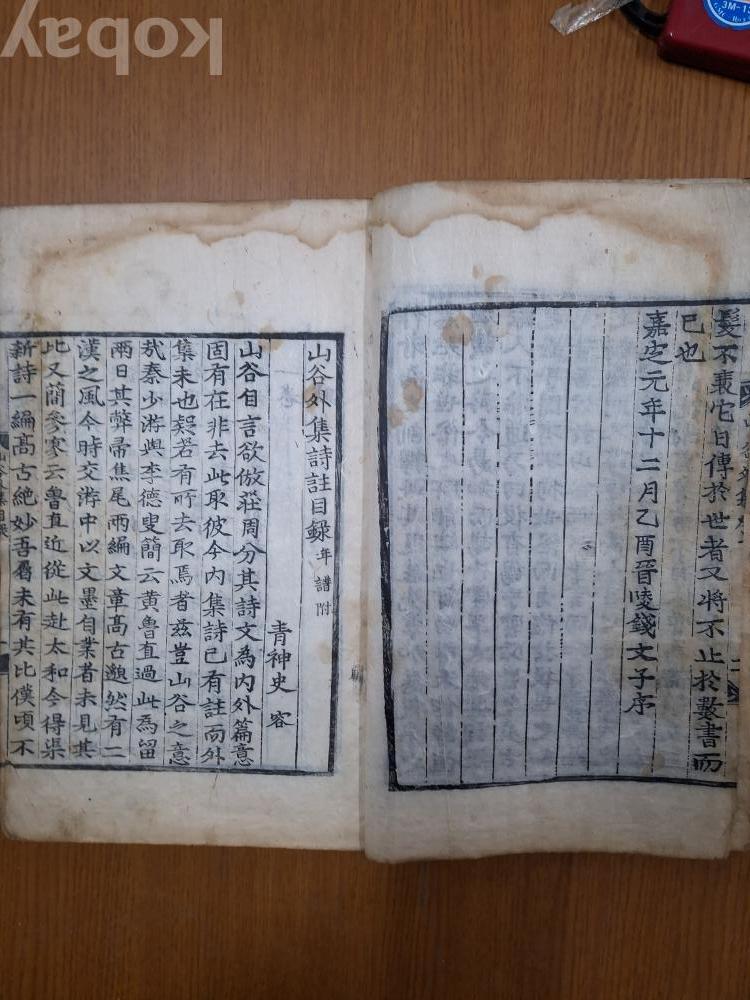 髮不衰它日傳於世者又將不止於數書而
已也
嘉定元年十二月乙酉晉陵錢文子序
山谷外集詩註目録 年譜附
青神史 容
山谷自言欲倣莊周分其詩文為内外篇意
固有在非去此取彼今内集詩已有註而外
集未也疑若有所去取焉者兹豈山谷之意
㢤秦少游與李德叟簡云黄魯直過此為留
兩日其弊帚焦尾兩編文章髙古邈然有二
漢之風今時交游中以文墨自業者未見其
比又蕳參寥云魯直近從此赴太和令得渠
新詩一編髙古絶妙吾屬未有其比僕頃不
kobay
3M-13